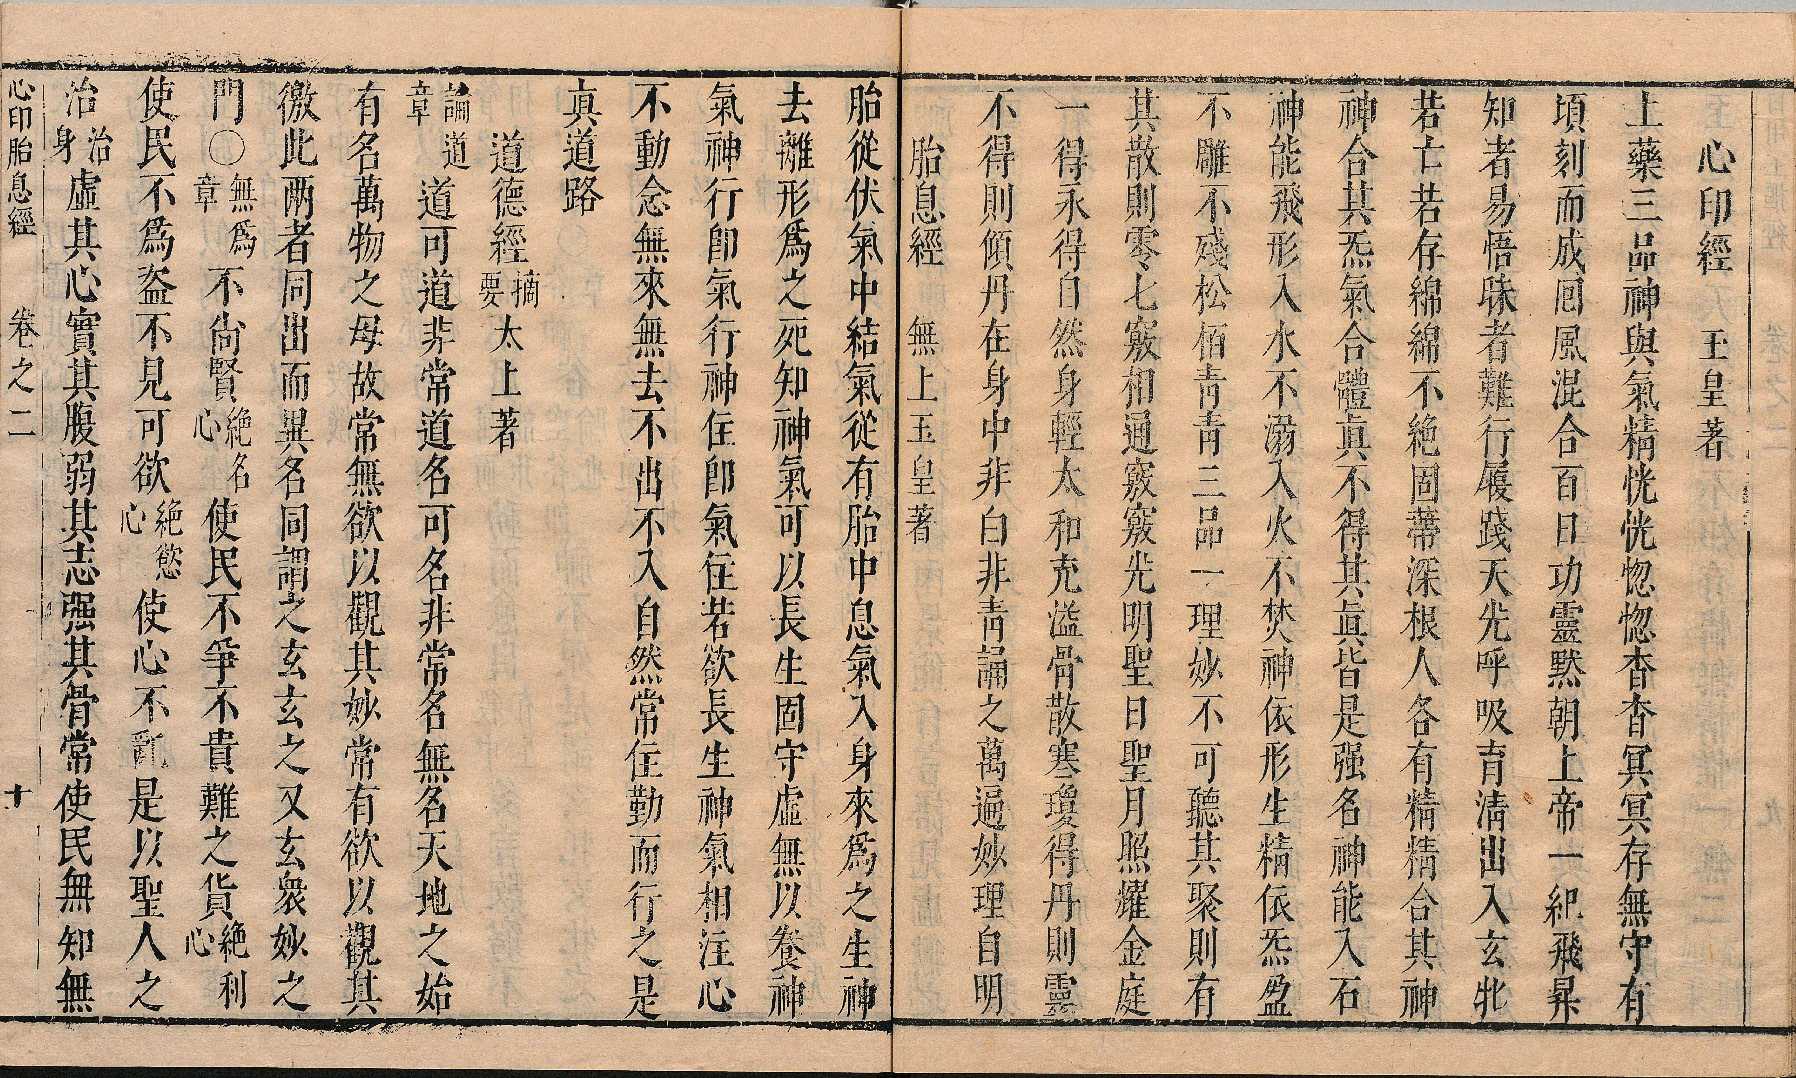 心印經　玉皇著
上藥三品神與氣精恍恍惚惚杳杳冥冥存無守有
頃刻而成囘風混合百日功靈黙朝上帝一紀飛昇
知者易悟昧者難行履踐天光呼吸育淸出入玄牝
若亡若存綿綿不絶固蔕深根人各有精精合其神
神合其炁氣合體眞不得其眞皆是强名神能入石
神能飛形入水不溺入火不焚神依形生精依炁盈
不雕不殘松栢靑靑三品一理妙不可聽其聚則有
其散則零七竅相通竅竅光明聖日聖月照耀金庭
一得永得自然身輕太和充溢骨散寒瓊得丹則靈
不得則傾丹在身中非白非靑誦之萬遍妙理自明
胎息經　無上玉皇著
胎從伏氣中結氣從有胎中息氣入身來爲之生神
去離形爲之死知神氣可以長生固守虛無以養神
氣神行卽氣行神住卽氣住若欲長生神氣相注心
不動念無來無去不出不入自然常住勤而行之是
眞道路
道德經摘要太上著
論道章道可道非常道名可名非常名無名天地之始
有名萬物之母故常無欲以觀其妙常有欲以觀其
徼此兩者同出而異名同謂之玄玄之又玄衆妙之
門〇無爲章不尙賢絶名心使民不爭不貴難之貨絶利心
使民不爲盜不見可欲絶慾心使心不亂是以聖人之
治治身虛其心實其腹弱其志强其骨常使民無知無
心印胎息經　卷之二　十